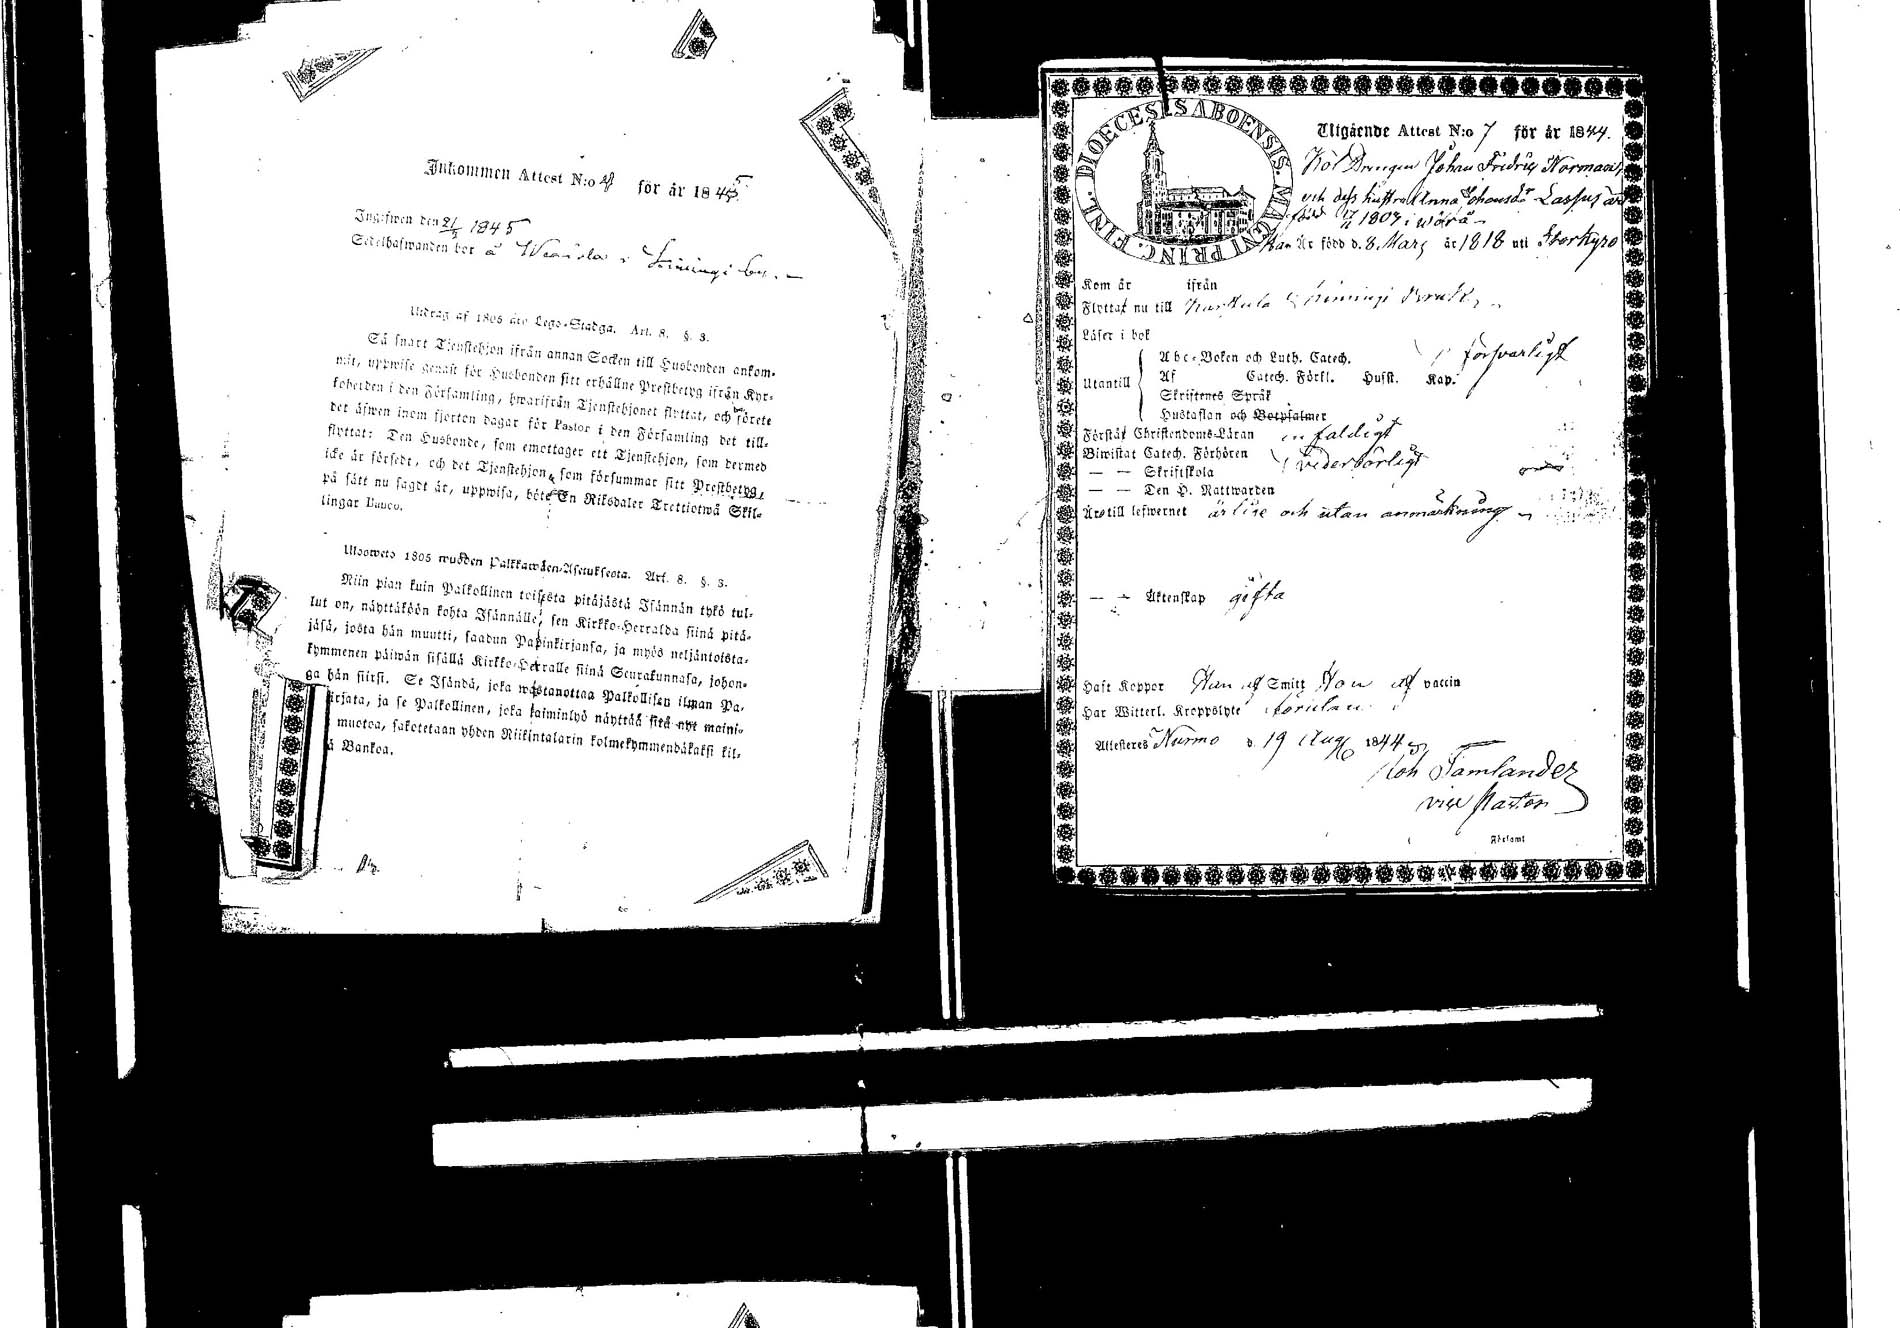 Inkommen Attest N:o för år 1845.
Ingifwen den 1845
Sedelhafwanden bor å by.
Utdrag af 1805 års Lego-Stadga. Art. 8. §. 3.
Så snart Tjenstehjon ifrån annan Socken till Husbonden ankom-
mit, uppwise genast för Husbonden sitt erhållne Prestbetyg ifrån Kyr-
koherden i den Församling, hwarifrån Tjenstehjonet flyttat, och förete
det äfwen inom fjorton dagar för Pastor i den Församling det till-
flyttat: Den Husbonde, som emottager ett Tjenstehjon, som dermed
icke är försedt, och det Tjenstehjon, som försummar sitt Prestbetyg,
på sätt nu sagdt är, uppwisa, böte En Riksdaler Trettiotwå Skil-
lingar Banco.
Ulosweto 1805 wuoden Palkkawäen-Asetuksesta. Art. 8. §. 3.
Niin pian kuin Palkollinen toisesta pitäjästä Isännän tykö tul-
lut on, näyttäköön kohta Isännälle, sen Kirkko-Herralda siinä pitä-
jäsä, josta hän muutti, saadun Papinkirjansa, ja myös neljäntoista-
kymmenen päiwän sisällä Kirkko-Herralle siinä Seurakunnasa, johon-
ga hän siirsi. Se Isändä, joka wastanottaa Palkollisen ilman Pa-
irjata, ja se Palkollinen, joka laiminlyö näyttää sitä nyt maini-
muotoa, sakotetaan yhden Riikintalarin kolmekymmendäkaksi kil-
ä Bankoa.
DIOECESIS ABOENSIS. MAGNI PRINC. FINL.
Utgående Attest N:o 7 för år 1844.
Drengen Johan Fridric Norrman,
och dess hustru Anna Johansdr Lassus är
född 1803 i Wörå
han Är född d. 8. Mars år 1818 uti Storkyro
Kom år ifrån
Flyttat nu till Kimingi Bruk
Läser i bok
Utantill
Abc-Boken och Luth. Catech. försvarligt
Af Catech. Förkl. Husst. Kap.
Skriftenes Språk
Hustaflan och Botpsalmer
Förstår Christendoms-Läran enfaldigt
Biwistat Catech. Förhören vederbörligt
— — Skriftskola
— — Den H. Nattwarden
Är till lefwernet ärlige och utan anmärkning
— — Äktenskap gifta
Haft Koppor Han af Smitt Hon af vaccin
Har Witterl. Kroppslyte
Attesteras Nurmo d. 19 Aug 1844
Joh Tamlander
vice Pastor
Förlamt